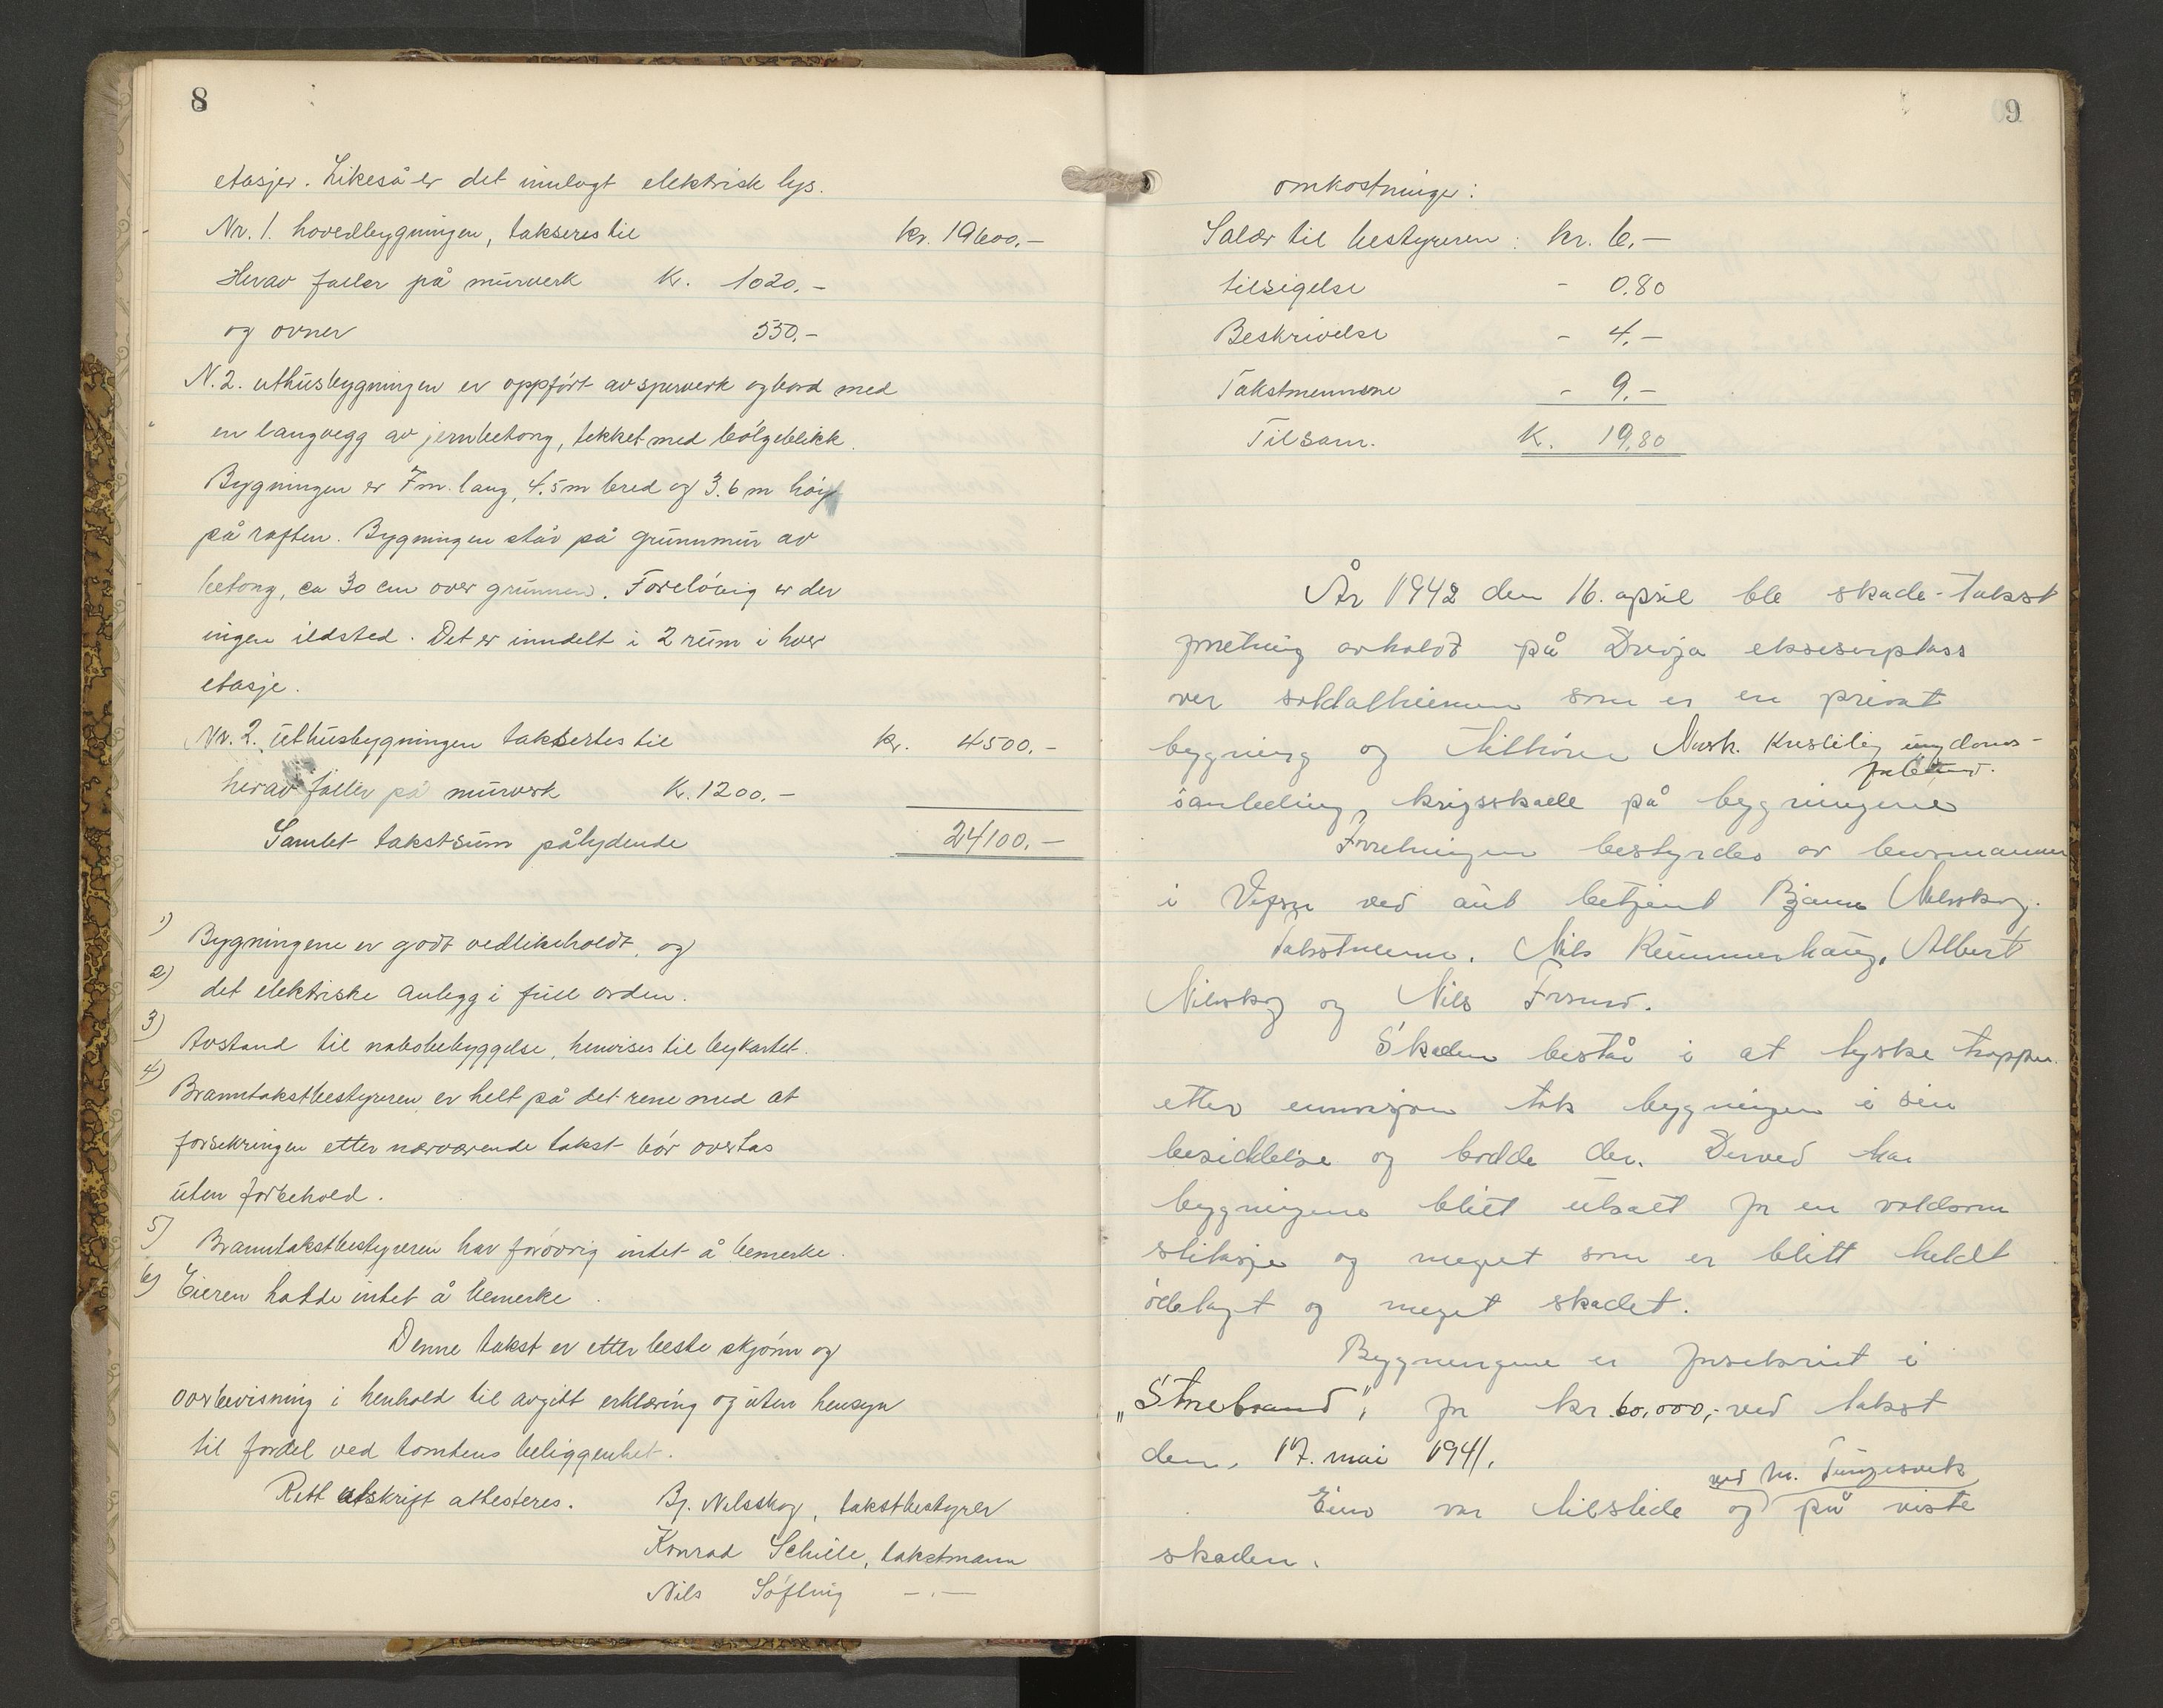 8
etasjer. Likeså er det innlagt elektrisk lys.
Nr. 1. hovedbygningen, takseres til kr. 19600,-
Herav faller på murverk K. 1020,-
og ovner 550,-
N. 2. uthusbygningen er oppført av sperverk og bord med
en langvegg av jernbetong, tekket med bølgeblikk.
Bygningen er 7 m. lang, 4.5 m bred og 3.6 m høy
på raften. Bygningen står på grunnmur av
betong, ca 30 cm over grunnen. Foreløbig er der
ingen ildsted. Det er inndelt i 2 rum i hver
etasje.
Nr. 2. uthusbygningen taksertes til kr. 4500,-
herav faller på murverk K. 1200,-
Samlet takstsum pålydende 24100,-
1) Bygningene er godt vedlikeholdt, og
2) det elektriske anlegg i full orden.
3) Avstand til nabobebyggelse, henvises til bykartet.
4) Branntakstbestyreren er helt på det rene med at
forsekringen etter nærværende takst bør overtas
uten forbehold.
5) Branntakstbestyreren har forøvrig intet å bemerke.
6) Eieren hadde intet å bemerke.
Denne takst er etter beste skjønn og
overbevisning i henhold til avgitt erklæring og uten hensyn
til fordel ved tomtens beliggenhet.
Rett utskrift attesteres. Bj. Nilsskog, takstbestyrer
Konrad Schille, takstmann
Nils Søfting -.-
9
omkostninger:
Salær til bestyreren: kr. 6,-
tilsigelse - 0.80
Beskrivelse - 4,-
Takstmennene - 9,-
Tilsam. K. 19,80
År 1942 den 16. april ble skade-takst
forretning avholdt på Drevja ekserserplass
over soldatheimen som er en privat
bygning og tilhører Norsk. Kristelig ungdoms-
forbund.
i anledning krigsskade på bygningene
Forretningen bestyrdes av lensmannen
i Vefsn ved aut betjent Bjarne Nilsskog.
Takstmenn. Nils Remmerhaug, Albert
Nilsskog og Nils Forsmo.
Skaden består i at tyske tropper
etter invasjon tok bygningen i sin
besiddelse og bodde der. Derved har
bygningene blitt utsatt for en voldsom
slitasje og meget som er blitt heldt
ødelagt og meget skadet.
Bygningene er forsekrist i
„Storebrand", for kr. 60.000,- ved takst
den, 17. mai 1941.
ved M. Tungesvik
Eier var tilstede og på viste
skaden.